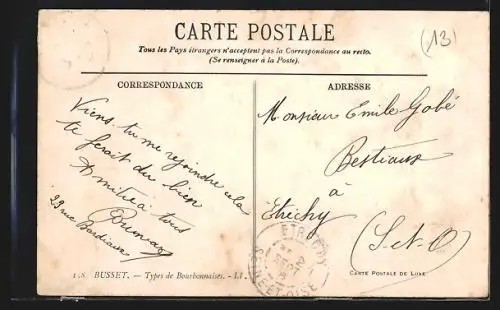 (13)
CARTE POSTALE
Tous les Pays étrangers n'acceptent pas la Correspondance au recto.
(Se renseigner à la Poste).
CORRESPONDANCE
Viens tu me rejoindre cela
te ferait du bien
Amitié à tous
23 rue Bordiaux
ADRESSE
Monsieur Emile Gobé
Bestiaux
à
Etréchy
(S-et-O)
ETRÉCHY
SEINE ET OISE
BUSSET. — Types de Bourbonnaises. - LL.
CARTE POSTALE DE LUXE